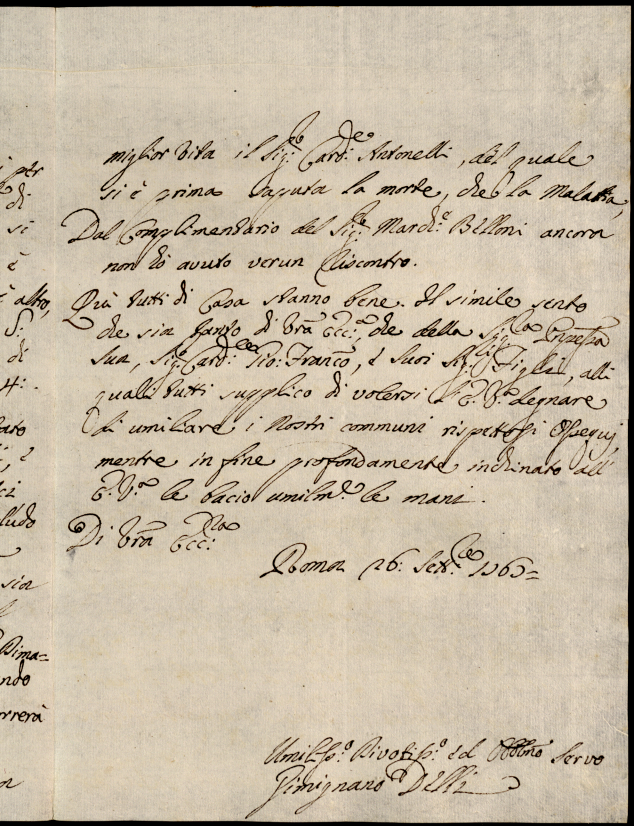 per
di
si
è
è altro,
S:
di
4:.
ato
i, e
ci
ludo
sia
Rima=
ndo
rrerà
miglior vita il Sig.re Card.le Antonelli, del quale
si è prima saputa la morte, che la Malattia,
Dal Complimentario del Sig.re March.e Belloni ancora
non hò avuto verun Riscontro.
Quà tutti di Casa stanno bene. Il simile sento
che sia tanto di Vra Ecc:a, che della Sig.ra Pnpessa
Sua, Sig.r Card.le Gio: Franco, e Suoi Sig.ri Figli, alli
quali tutti supplico di volersi l'E: V.a degnare
di umiliare i Nostri communi rispettosi Ossequj
mentre in fine profondamente inchinato all'
E: V.a le bacio umilm.te le mani.
Di Vra Ecc:za
Roma 26: Sett.re 1767=
Umiliss.o Divotiss.o ed Obblmo Servo
Gimignano Delli